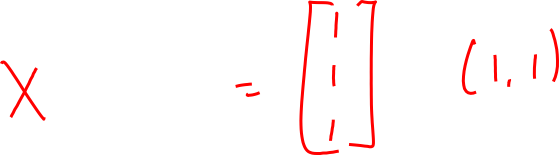 X = [1 1 1] (1,1)